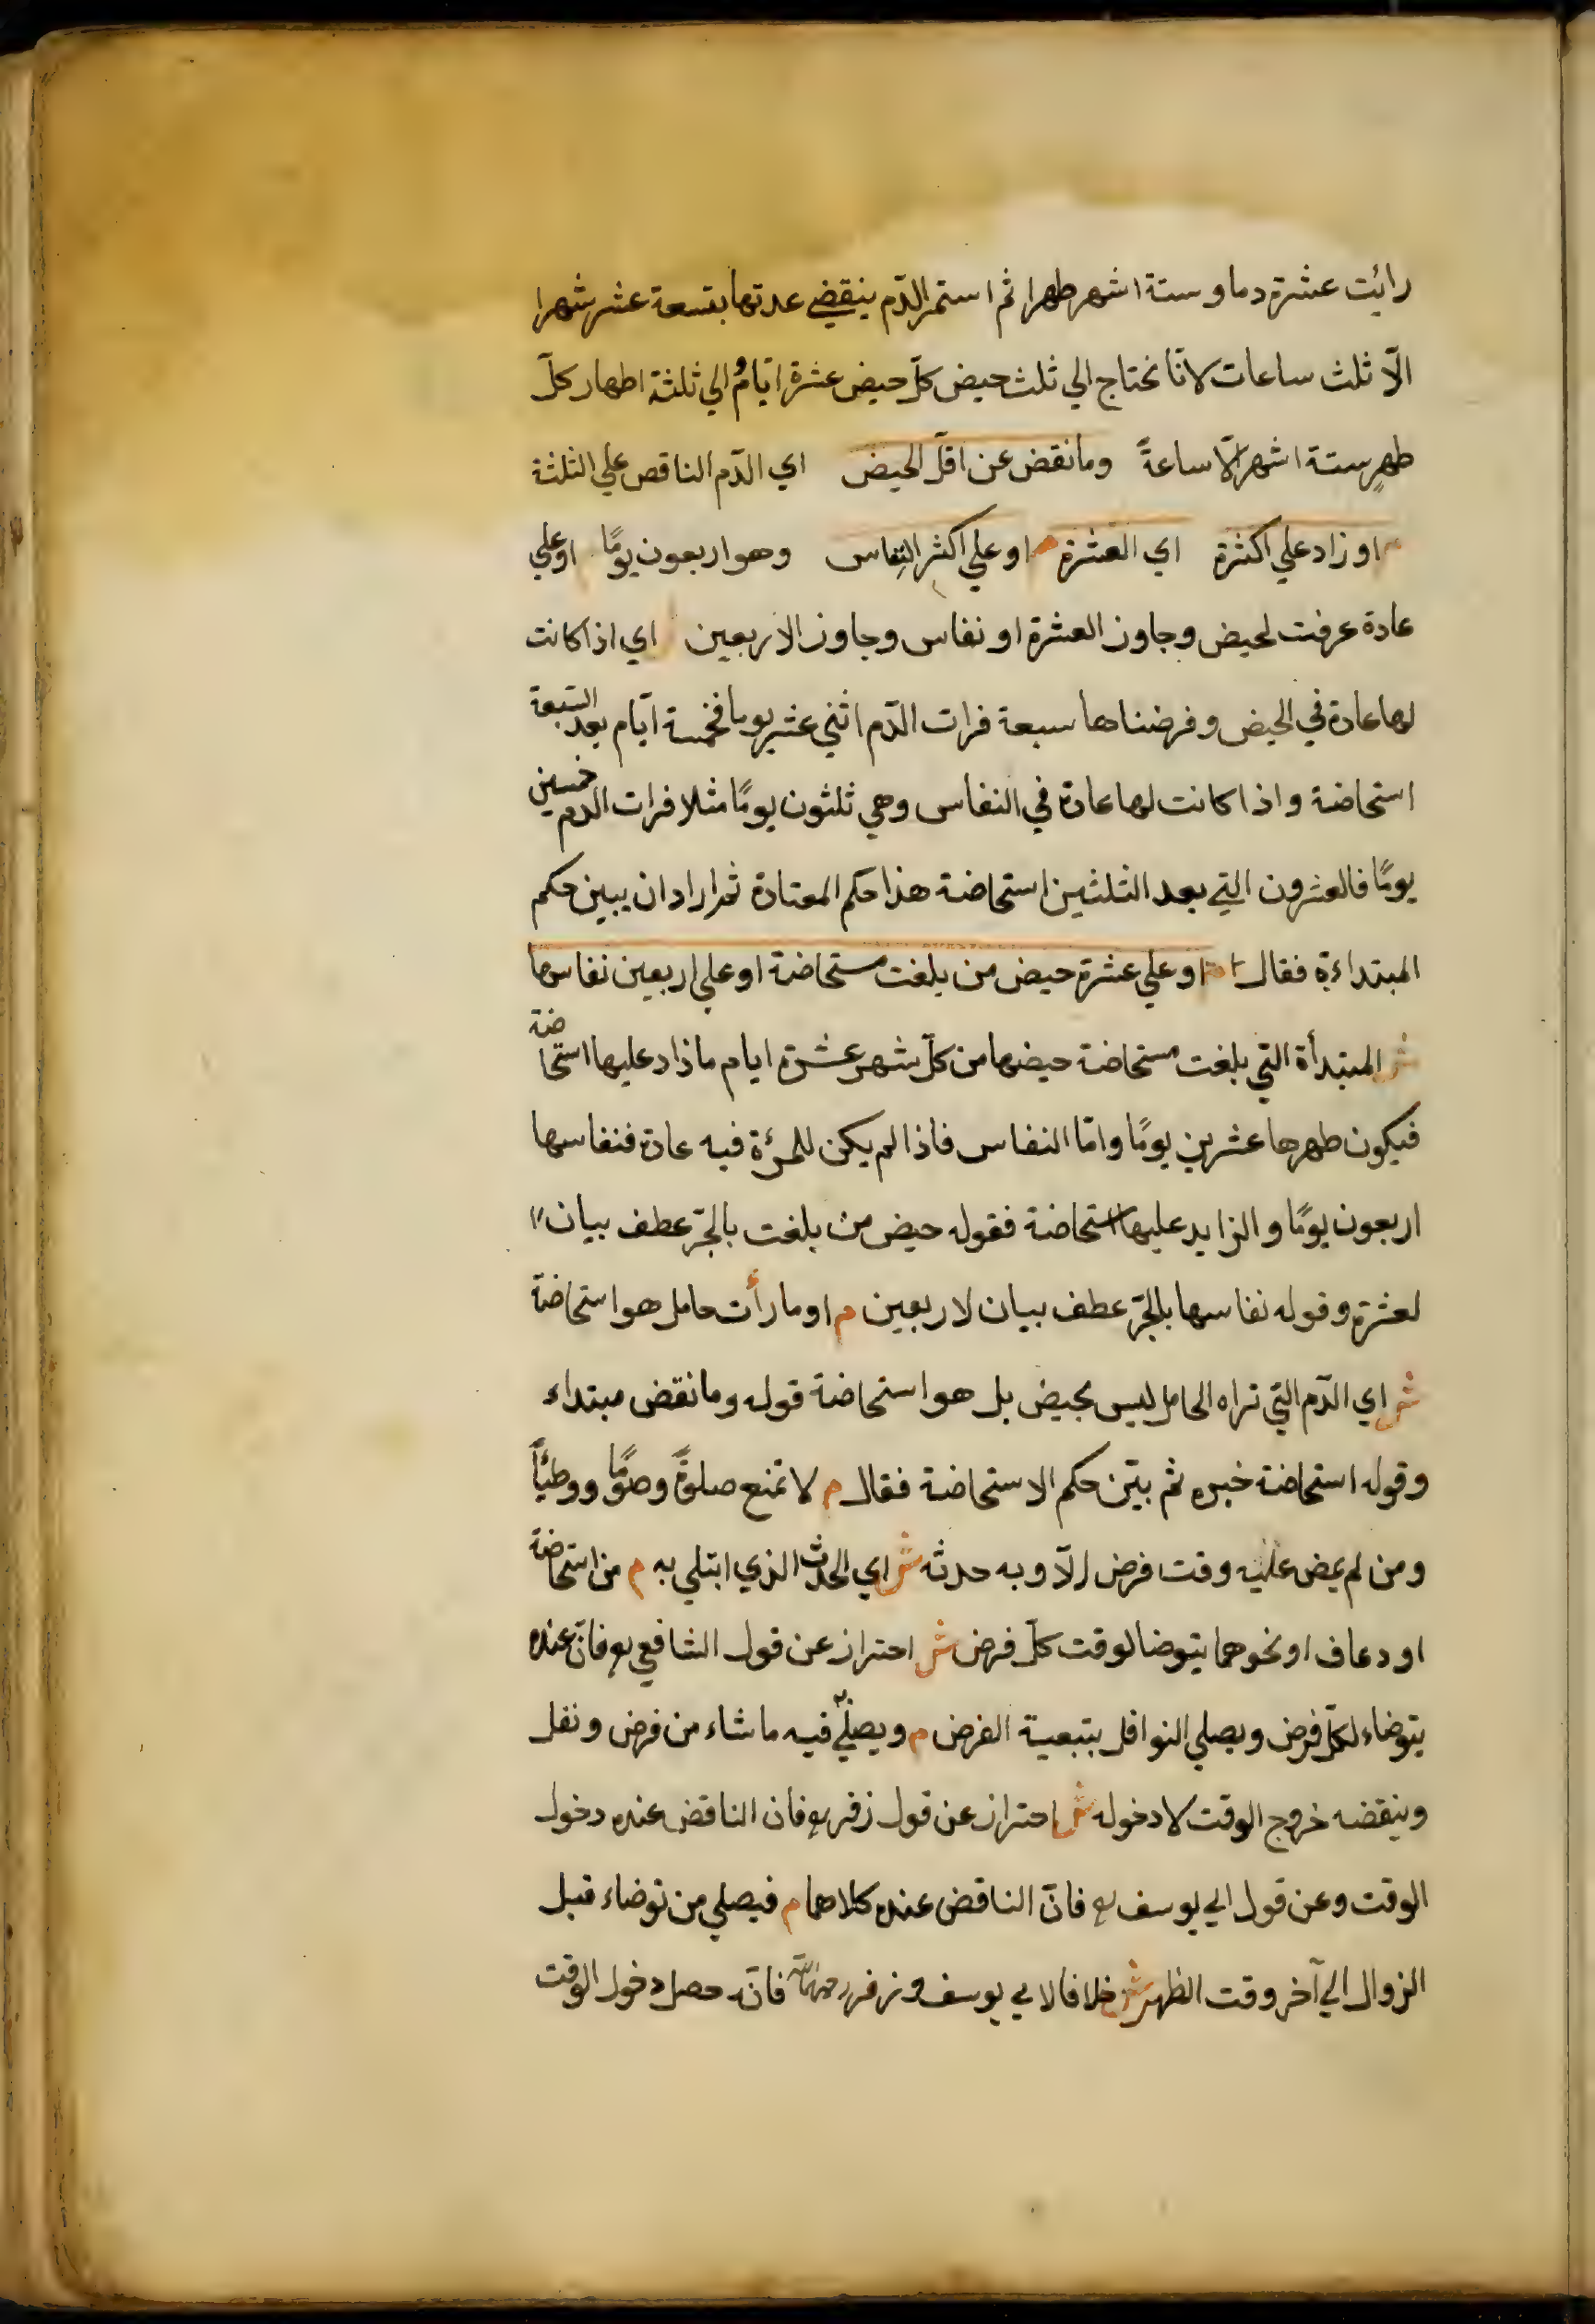 رائت عشرة دما وستة اشهر طهرا ثم استمر الدّم ينقضي عدتها بتسعة عشر شهرا
الّا ثلث ساعات لانّا نحتاج الي ثلث حيض كلّ حيض عشرة ايّام والي ثلثة اطهار كلّ
طهرٍ ستة اشهر الّا ساعةً ومانقض عن اقلّ الحيض اي الدّم الناقص علي الثلثة
م او زاد علي اكثرة اي العشرة م او علي اكثر النِفاس وهو اربعون يومًا او علي
عادة عرفت لحيض وجاوز العشرة او نفاس وجاوز الاربعين اي اذا كانت
لها عادة في الحيض وفرضناها سبعة فرات الدّم اثني عشر يوما فخمسة ايّام بعد السّبعة
استحاضة واذا كانت لها عادة في النفاس وهي ثلثون يومًا مثلا فرات الدم خمسين
يومًا فالعشرون التي بعد الثلثين استحاضة هذا حكم المعتادة ثم اراد ان يبين حكم
المبتداءة فقال م او علي عشرة حيض من بلغت مستحاضة او علي اربعين نفاسها
ش المبتدأة التي بلغت مستحاضة حيضها من كلّ شهر عشرة ايام ماذاد عليها استحاضة
فيكون طهرها عشرين يومًا وامّا النفاس فاذا لم يكن للمرئة فيه عادة فنفاسها
اربعون يومًا والزايد عليها استحاضة فقوله حيض من بلغت بالجرّ عطف بيان
لعشرة وقوله نفاسها بالجرّ عطف بيان لاربعين م او ما رأت حامل هو استحاضة
ش اي الدّم التي تراه الحامل ليس بحيض بل هو استحاضة قوله ومانقض مبتداء
وقوله استحاضة خبره ثم بيّن حكم الاستحاضة فقال م لا تمنع صلوةً وصومًا ووطئاً
ومن لم يمض عليه وقت فرض الّا وبه حدثه ش اي الحدث الذي ابتلي به م من استحاضة
او دعاف او نحوهما يتوضا لوقت كلّ فرض ش احتراز عن قول الشافعي رح فانّ عنده
يتوضاء لكلّ فرض ويصلي النوافل بتبعية الفرض م ويصلّي فيه ماشاء من فرض ونفل
وينقضه خروج الوقت لا دخوله ش احتراز عن قول زفر رح فان الناقض عنده دخول
الوقت وعن قول ابي يوسف رح فانّ الناقض عنده كلاهما م فيصلي من توضاء قبل
الزوال الي آخر وقت الظهر ش خلافا لابي يوسف وزفر رحمهما الله فانّه حصل دخول الوقت